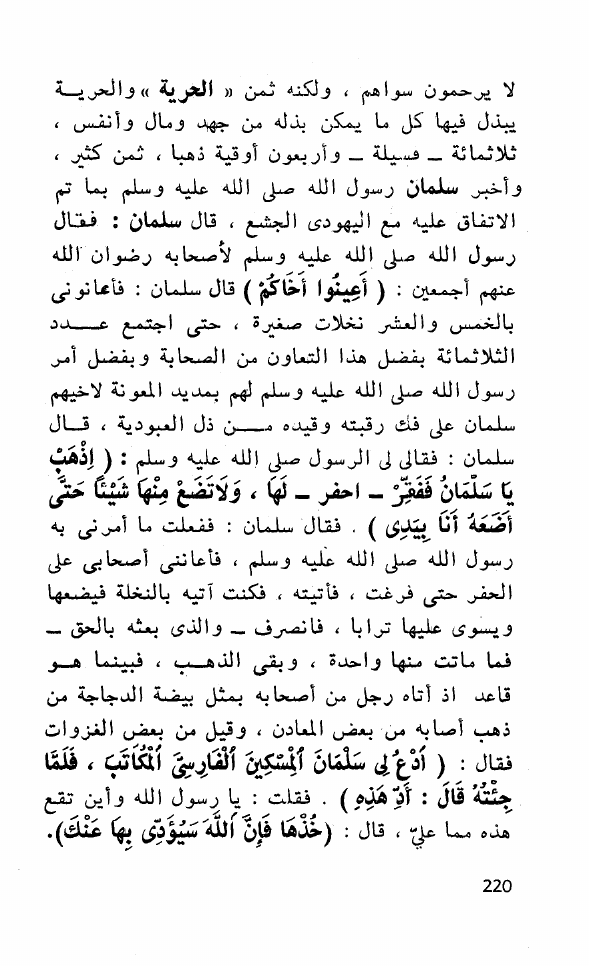 لا يرحمون سواهم ، ولكنه ثمن « الحرية » والحريـة
يبذل فيها كل ما يمكن بذله من جهد ومال وأنفس ،
ثلاثمائة ــ فسيلة ــ وأربعون أوقية ذهبا ، ثمن كثير ،
وأخبر سلمان رسول الله صلى الله عليه وسلم بما تم
الاتفاق عليه مع اليهودى الجشع ، قال سلمان : فقال
رسول الله صلى الله عليه وسلم لأصحابه رضوان الله
عنهم أجمعين : ( أَعِينُوا أَخَاكُمْ ) قال سلمان : فأعانونى
بالخمس والعشر نخلات صغيرة ، حتى اجتمع عــدد
الثلاثمائة بفضل هذا التعاون من الصحابة وبفضل أمر
رسول الله صلى الله عليه وسلم لهم بمديد المعونة لاخيهم
سلمان على فك رقبته وقيده مــن ذل العبودية ، قـال
سلمان : فقالى لى الرسول صلى الله عليه وسلم : ( اِذْهَبْ
يَا سَلْمَانُ فَفَقِّرْ ــ احفر ــ لَهَا ، وَلَاتَضَعْ مِنْهَا شَيْئًا حَتَّى
أَضَعَهُ أَنَا بِيَدِى ) . فقال سلمان : ففعلت ما أمرنى به
رسول الله صلى الله عليه وسلم ، فأعاننى أصحابى على
الحفر حتى فرغت ، فأتيته ، فكنت آتيه بالنخلة فيضعها
ويسوى عليها ترابا ، فانصرف ــ والذى بعثه بالحق ــ
فما ماتت منها واحدة ، وبقى الذهـب ، فبينما هـو
قاعد اذ أتاه رجل من أصحابه بمثل بيضة الدجاجة من
ذهب أصابه من بعض المعادن ، وقيل من بعض الغزوات
فقال : ( اُدْعُ لِى سَلْمَانَ اَلْمِسْكِينَ اَلْفَارِسِىَّ اَلْمُكَاتَبَ ، فَلَمَّا
جِئْتُهُ قَالَ : أَدِّ هَذِهِ ) . فقلت : يا رسول الله وأين تقع
هذه مما علىّ ، قال : (خُذْهَا فَإِنَّ اَللَّهَ سَيُؤَدِّى بِهَا عَنْكَ).
220